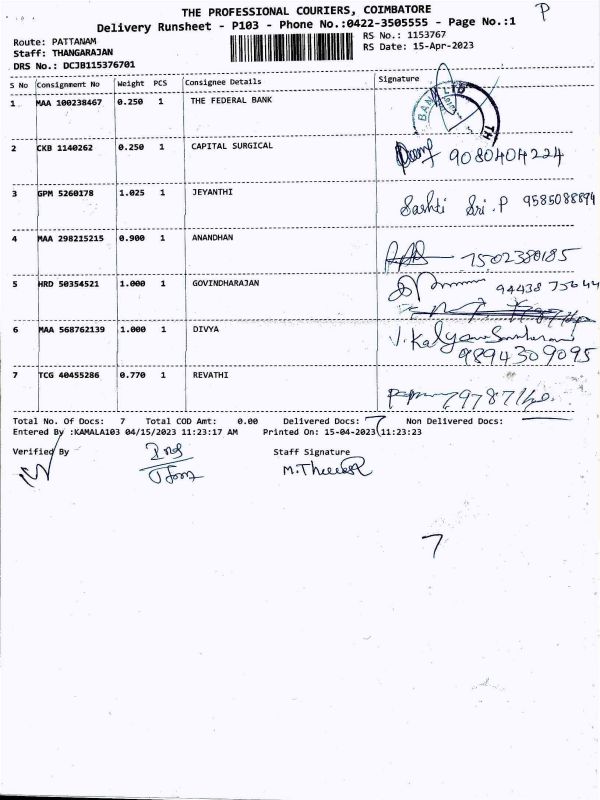 THE PROFESSIONAL COURIERS, COIMBATORE
P
Delivery Runsheet - P103 - Phone No.:0422-3505555 - Page No.:1
Route: PATTANAM
RS No.: 1153767
Staff: THANGARAJAN
RS Date: 15-Apr-2023
DRS No.: DCJB115376701
S No Consignment No Weight PCS Consignee Details Signature
1 MAA 100238467 0.250 1 THE FEDERAL BANK
2 CKB 1140262 0.250 1 CAPITAL SURGICAL 9080404224
3 GPM 5260178 1.025 1 JEYANTHI Sashti Sri.P 9585088894
4 MAA 298215215 0.900 1 ANANDHAN 7502380185
5 HRD 50354521 1.000 1 GOVINDHARAJAN 94438 75644
6 MAA 568762139 1.000 1 DIVYA V. Kalyana Sundaram
9894309095
7 TCG 40455286 0.770 1 REVATHI
Total No. Of Docs: 7 Total COD Amt: 0.00 Delivered Docs: 7 Non Delivered Docs:
Entered By :KAMALA103 04/15/2023 11:23:17 AM Printed On: 15-04-2023 11:23:23
Verified By
Staff Signature
7